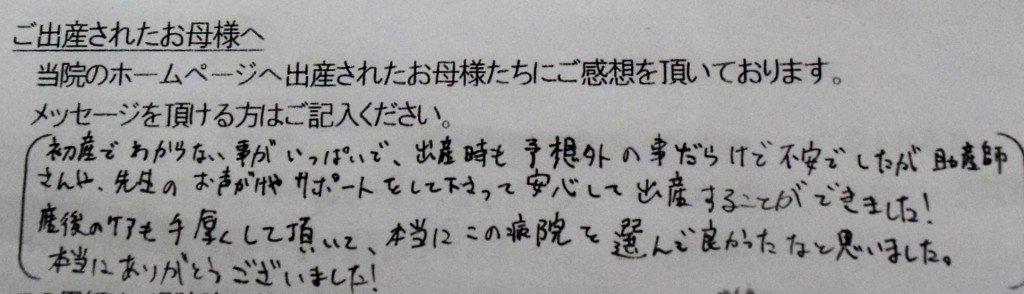 ご出産されたお母様へ
当院のホームページへ出産されたお母様たちにご感想を頂いております。
メッセージを頂ける方はご記入ください。
初産でわからない事がいっぱいで、出産時も予想外の事だらけで不安でしたが助産師
さんや、先生のお声がけやサポートをして下さって安心して出産することができました!
産後のケアも手厚くして頂いて、本当にこの病院を選んで良かったなと思いました。
本当にありがとうございました!